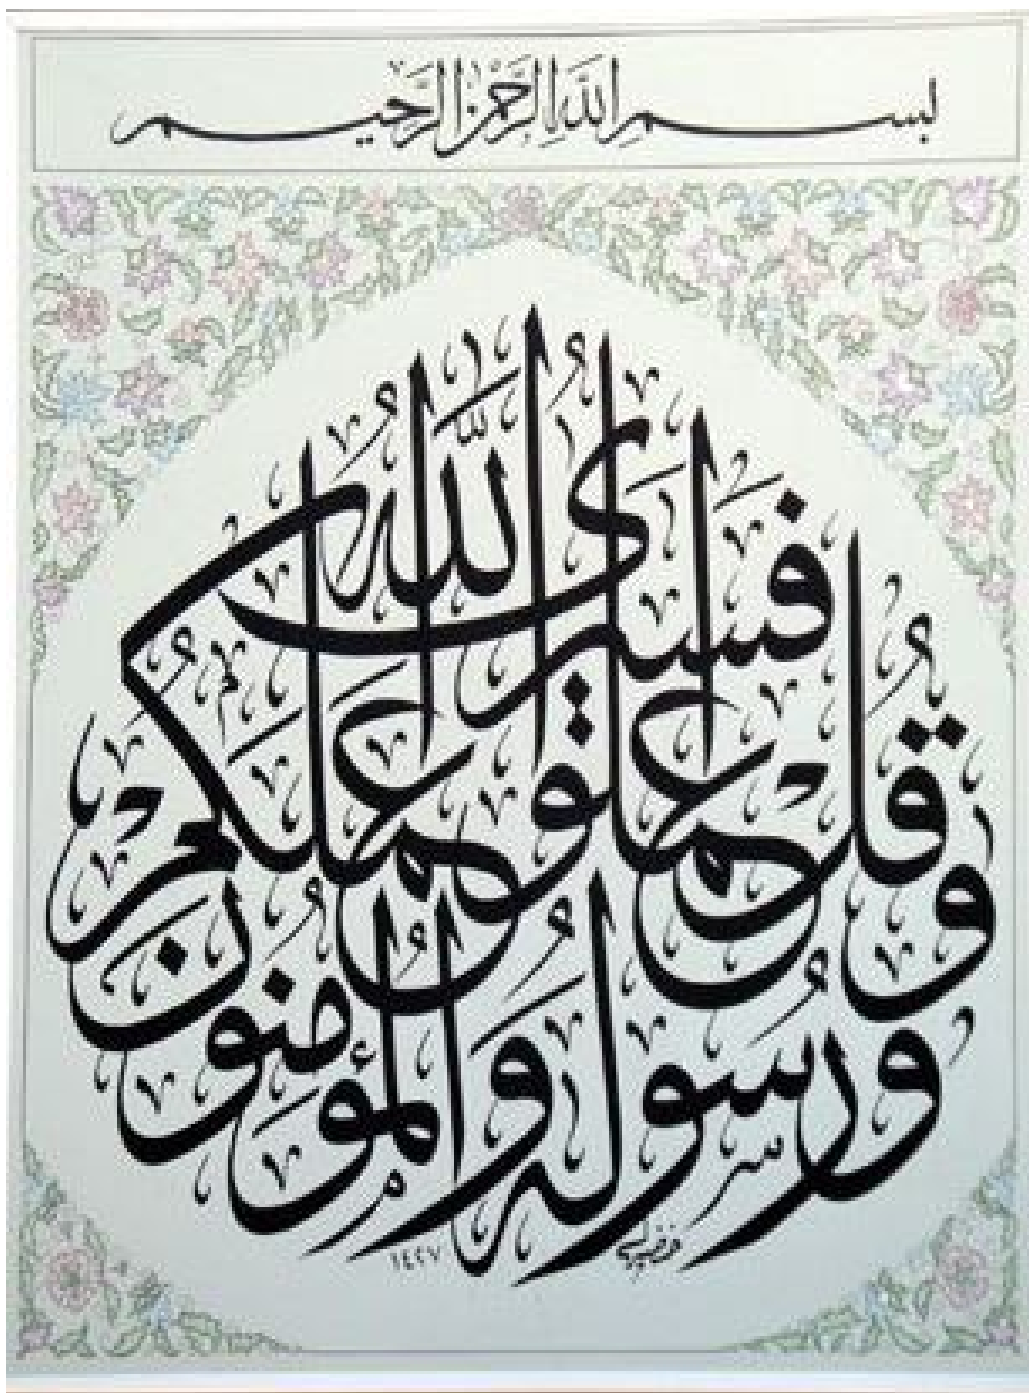 بسم الله الرحمن الرحيم
وقل اعملوا فسيرى الله عملكم ورسوله والمؤمنون